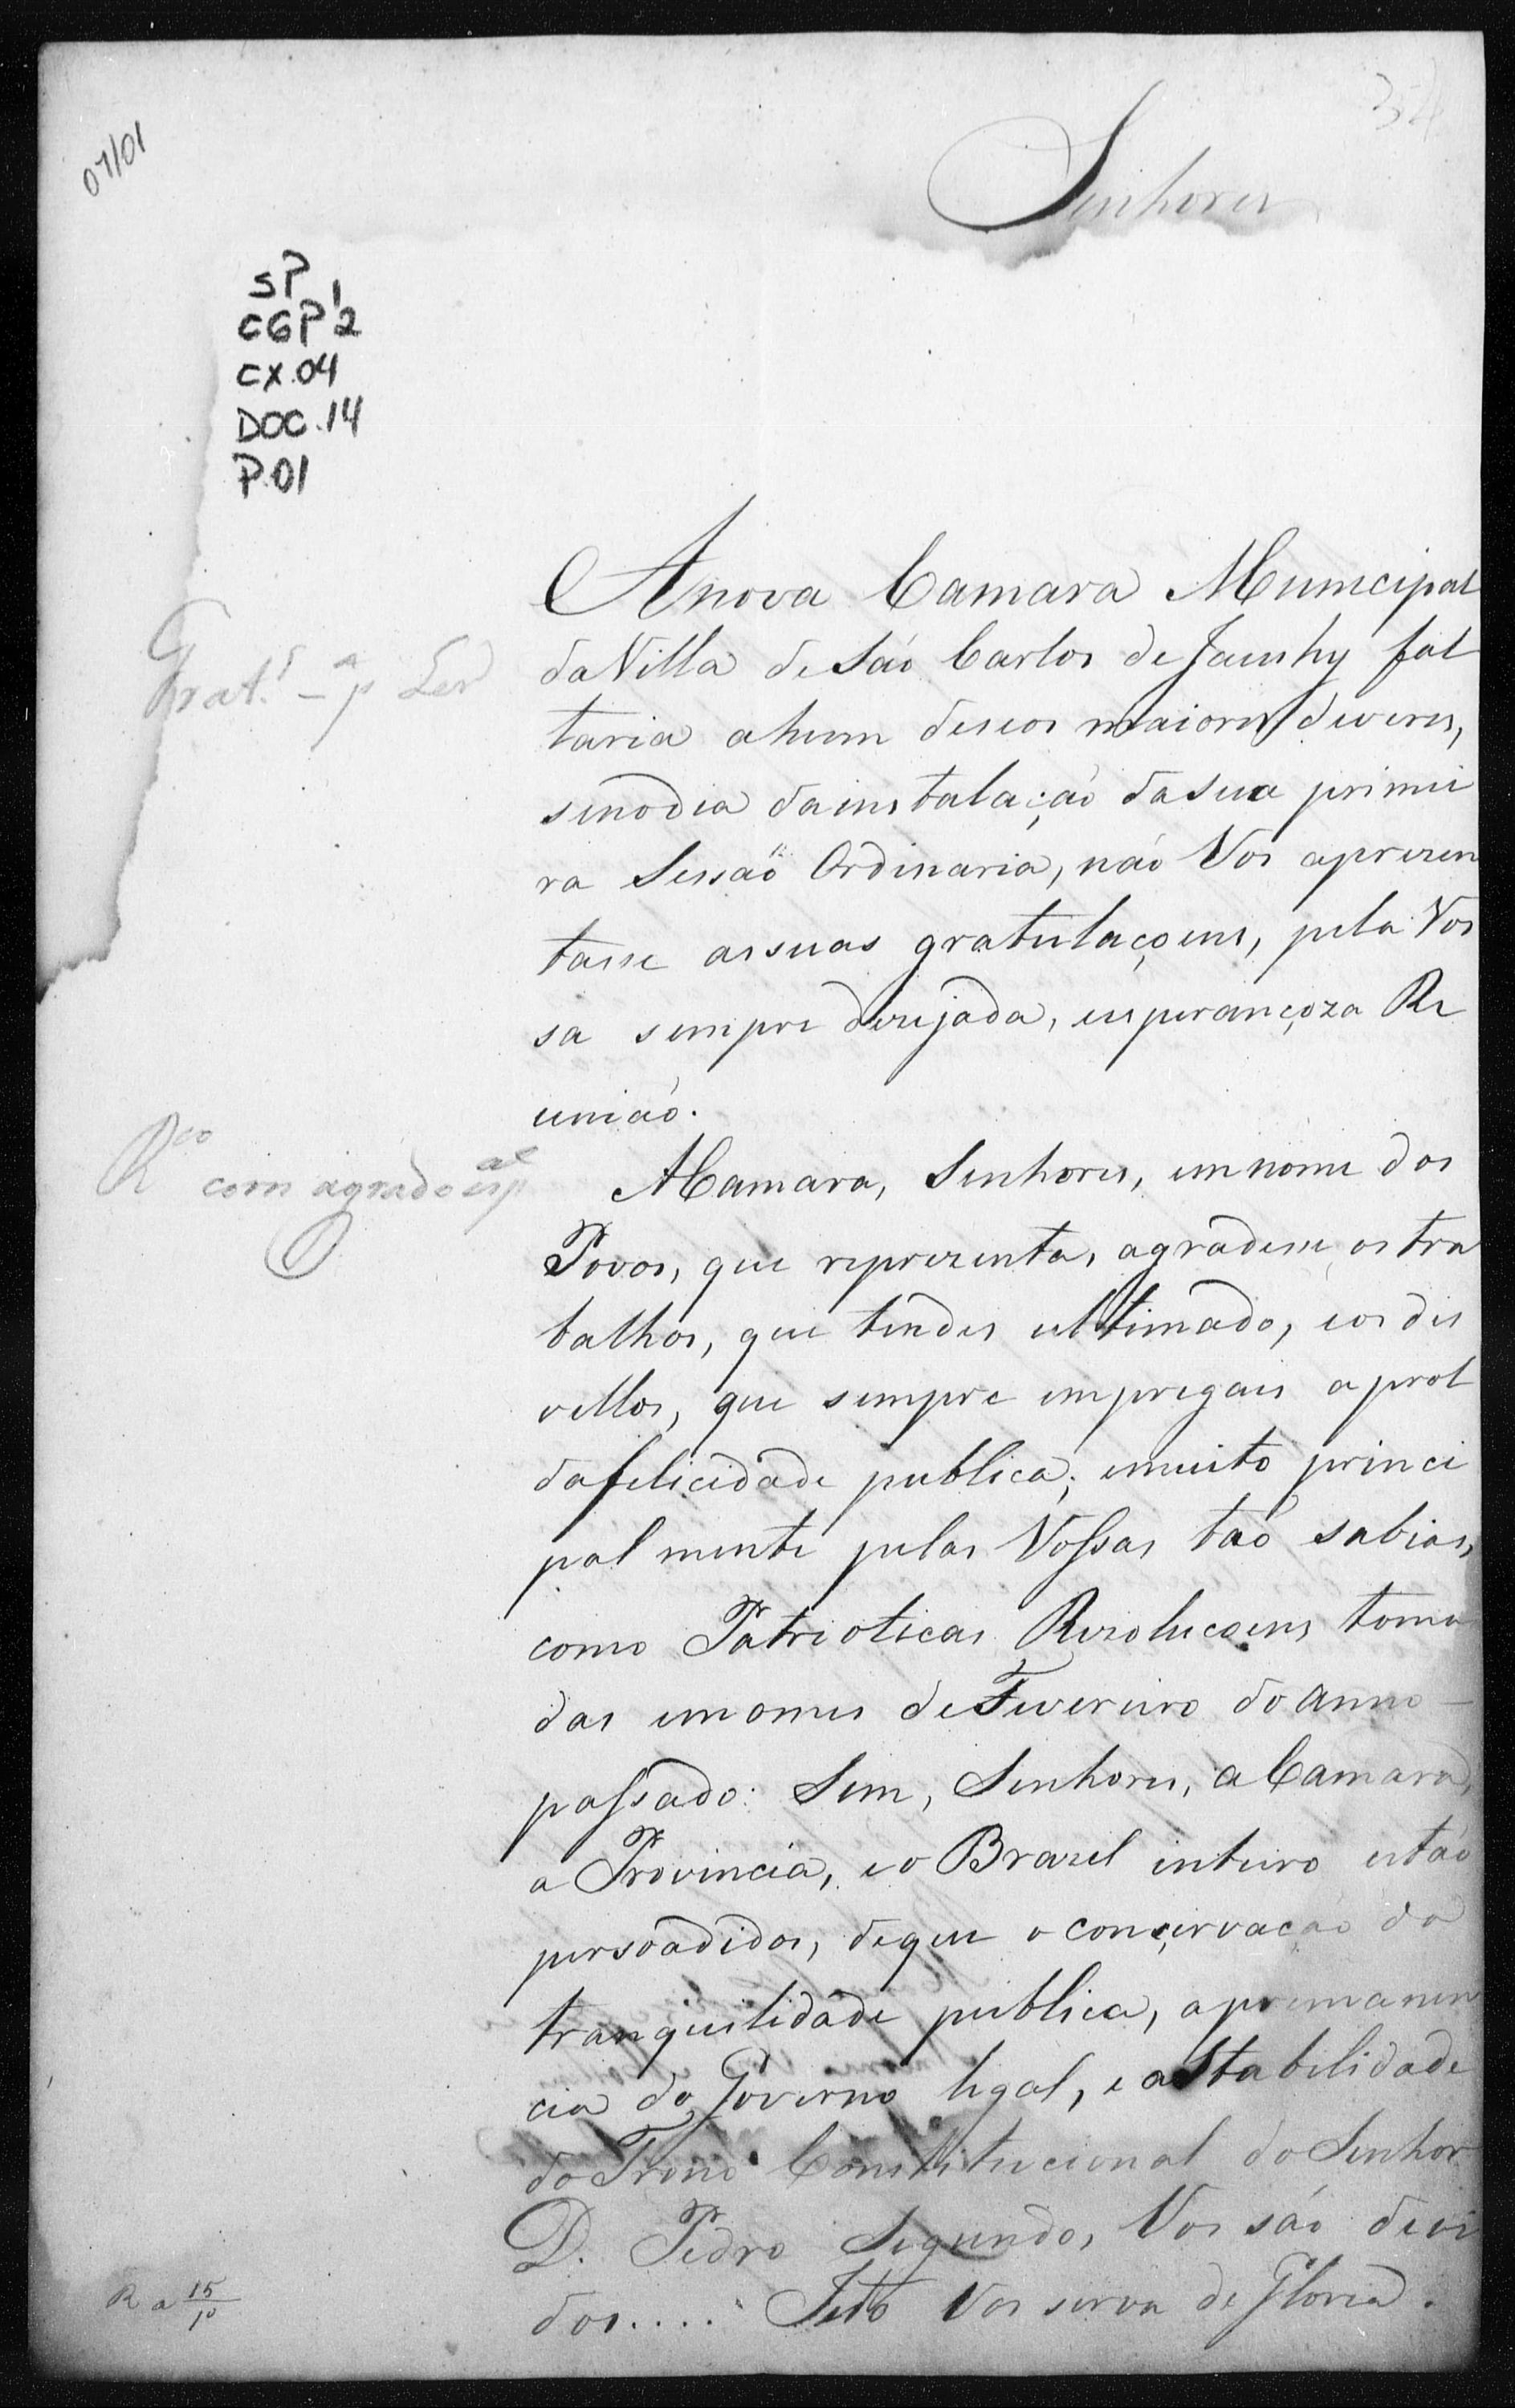 07/01
34
Senhores
SP 1
CGP 2
CX.04
DOC.14
P.01
A nova Camara Municipal
da Villa de São Carlos de Jacuhy fal
taria ahum deseos maiores deveres,
senodia dainstalação dasua primei
ra Sessaõ Ordinaria, náo Vos aprezen
tasse assuas gratulaçoens, pela Vos
sa sempre dezejada, esperançoza Re
união.
Grat. - p Ler
ACamara, Senhores, emnome dos
Povos, que reprezenta, agradese os tra
balhos, que tendes ultimado, eos dis
vellos, que sempre empregais a prol
dafelicidade publica; emuito princi
pal mente pelas Voſsas taó sabias,
como Patrioticas Rezolucoens toma
das emomes deFevereiro do anno
paſsado: Sim, Senhores, a Camara,
a Provincia, eo Brazil inteiro estaó
persoadidos, deque a conçervacaó da
tranquilidade publica, apremanen
cia do Governo legal, e aStabilidade
doTrono Constitucional do Senhor
D. Pedro Segundo, Vos sáo devi
dos.... Isto Vos serva de Gloria.
Rco com agrado espal
R a 15/10